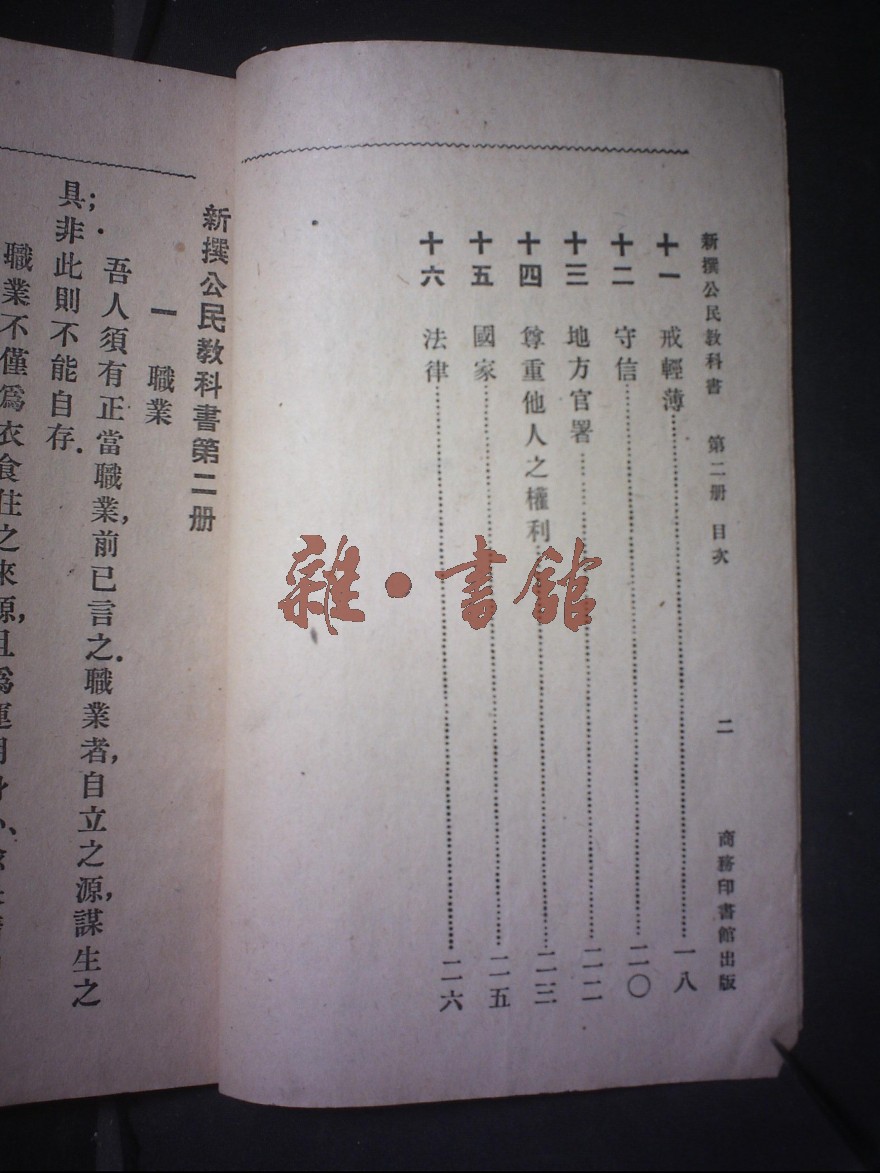 新撰公民教科書 第二册 目次 二 商務印書館出版
十一 戒輕薄 一八
十二 守信 二〇
十三 地方官署 二二
十四 尊重他人之權利 二三
十五 國家 二五
十六 法律 二六
雜·書館
新撰公民教科書第二册
一 職業
吾人須有正當職業,前已言之.職業者,自立之源,謀生之
具;非此則不能自存.
職業不僅爲衣食住之來源,且爲運用身心、